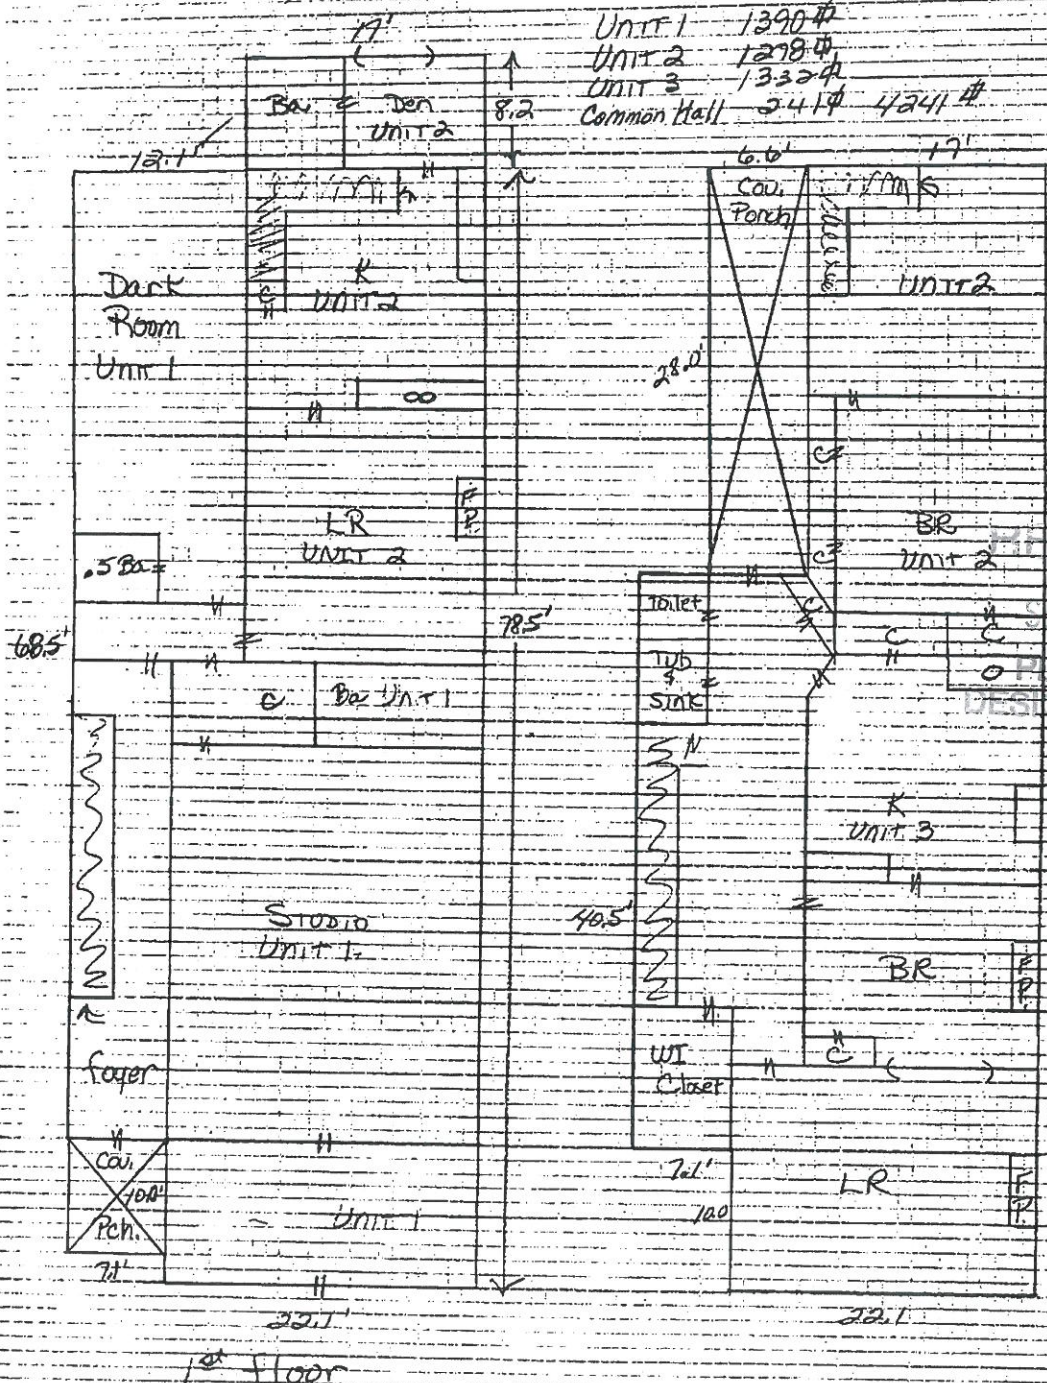 17'
Unit 1 1390 ⌗
Unit 2 1278 ⌗
Unit 3 1332 ⌗
Common Hall 241 ⌗ 4241 ⌗
Ba.
Den
Unit 2
8.2
12.1'
6.6'
17'
Cov.
Porch
Dark
Room
Unit 1
K
Unit 2
Unit 2
28.0'
C
.5 Ba
LR
Unit 2
F
P.
BR
Unit 2
C
Toilet
C
68.5'
78.5'
C
C
Tub
&
Sink
C
Ba Unit 1
K
Unit 3
Studio
Unit 1.
40.5'
BR
F
P.
foyer
WI
Closet
C
Cov.
10.0'
Pch.
7.1'
Unit 1
7.1'
10.0
LR
F
P.
22.1'
22.1
1st Floor